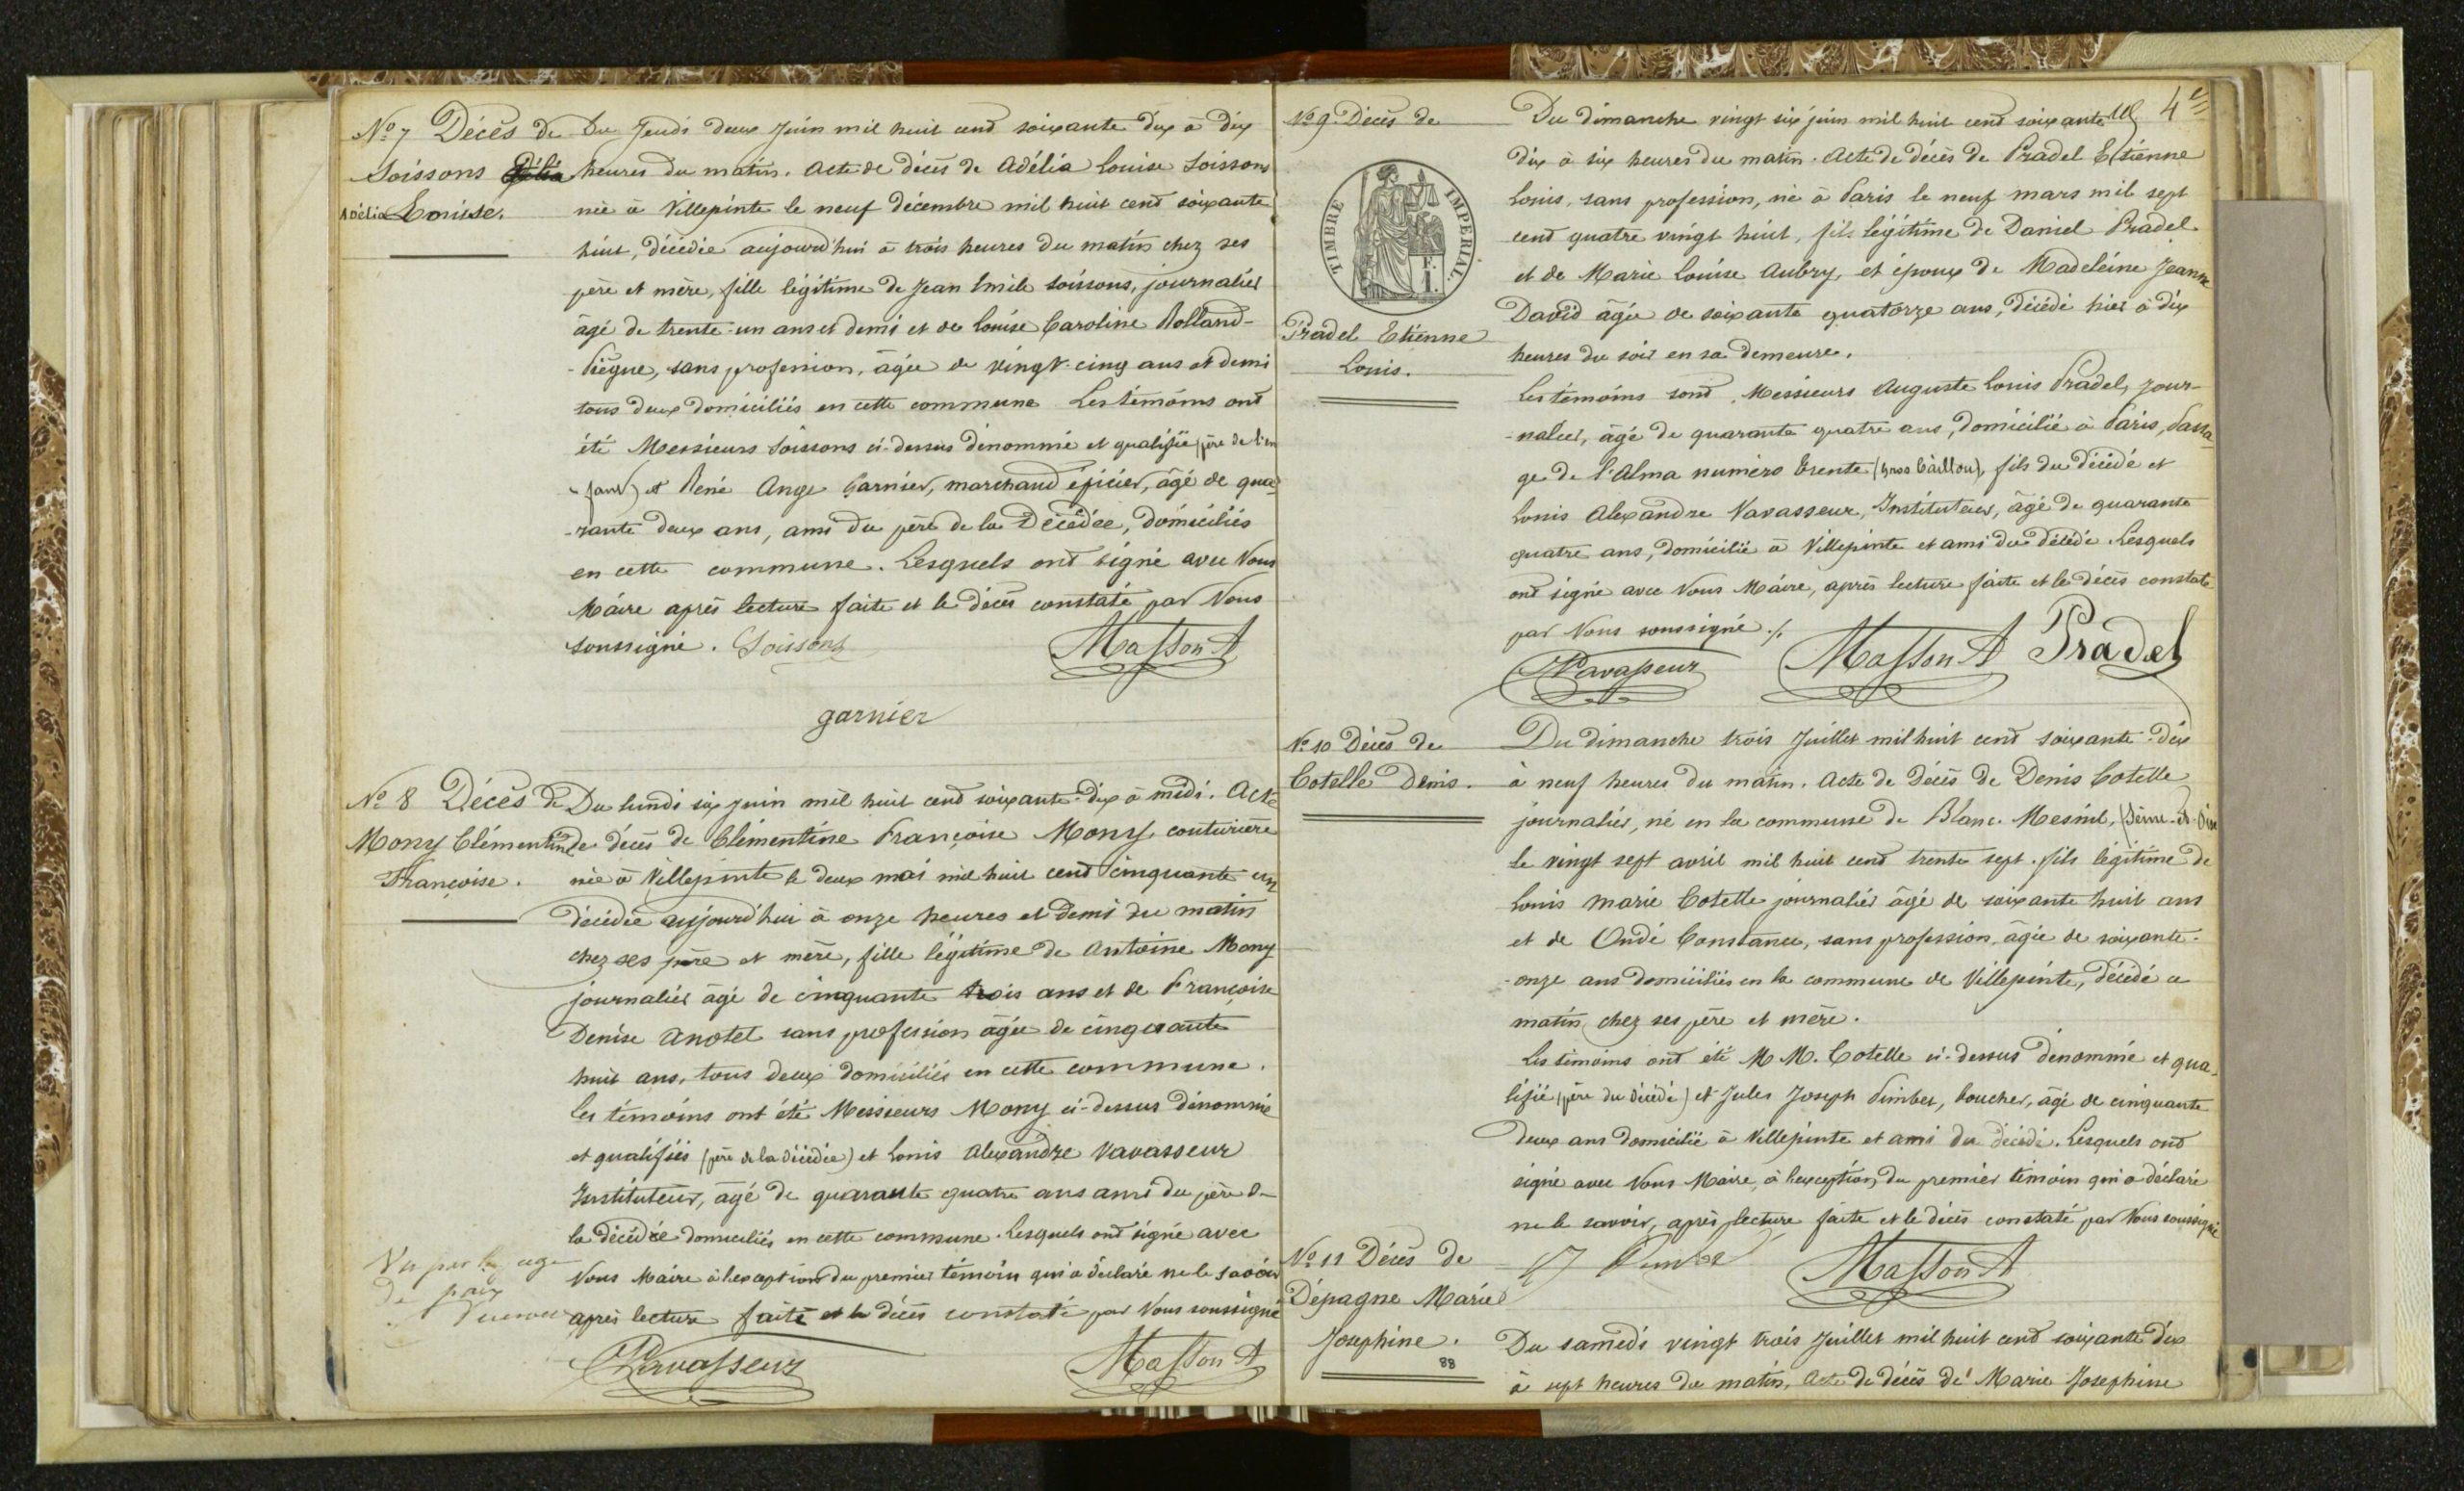 No 7 Décès de
Soissons
Adélia Louise.
Du Jeudi deux Juin mil huit cent soixante dix à dix
heures du matin. Acte de décès de Adélia Louise Soissons
née à Villepinte le neuf décembre mil huit cent soixante
huit, décédée aujourd'hui à trois heures du matin chez ses
père et mère, fille légitime de Jean Emile Soissons, journalier
âgé de trente-un ans et demi et de Louise Caroline Rolland-
-Piègue, sans profession, âgée de vingt-cinq ans et demi
tous deux domiciliés en cette commune Les témoins ont
été Messieurs Soissons ci-dessus dénommé et qualifié (père de l'en
-fant) et René Ange Garnier, marchand épicier, âgé de qua-
-rante deux ans, ami du père de la Décédée, domiciliés
en cette commune. Lesquels ont signé avec Nous
Maire après lecture faite et le décès constaté par Nous
soussigné. Soissons
Masson A
garnier
No 8 Décès de
Mony Clémentine
Françoise.
Du lundi six juin mil huit cent soixante-dix à midi. Acte
de décès de Clémentine Françoise Mony, couturière
née à Villepinte le deux mai mil huit cent cinquante un
décédée aujourd'hui à onze heures et demi du matin
chez ses père et mère, fille légitime de Antoine Mony
journalier âgé de cinquante trois ans et de Françoise
Denise Anotel sans profession âgée de cinquante
huit ans, tous deux domiciliés en cette commune.
Les témoins ont été Messieurs Mony ci-dessus dénommé
et qualifiés (père de la décédée) et Louis Alexandre Vavasseur
Instituteur, âgé de quarante quatre ans ami du père de
la décédée domiciliés en cette commune. Lesquels ont signé avec
Nous Maire à l'exception du premier témoin qui a déclaré ne le savoir
après lecture faite et le décès constaté par Nous soussigné
Vu par le juge
de paix
Vavasseur
Masson A
4e
No 9 Décès de
TIMBRE IMPERIAL
Pradel Etienne
Louis.
Du dimanche vingt six juin mil huit cent soixante
dix à six heures du matin. Acte de décès de Pradel Etienne
Louis, sans profession, né à Paris le neuf mars mil sept
cent quatre vingt huit, fils légitime de Daniel Pradel
et de Marie Louise Aubry, et époux de Madeleine Jeanne
David âgée de soixante quatorze ans, décédé hier à dix
heures du soir en sa demeure.
Les témoins sont, Messieurs Auguste Louis Pradel, jour-
-nalier, âgé de quarante quatre ans, domicilié à Paris, Passa-
ge de l'Alma numéro trente (Gros Caillou), fils du décédé et
Louis Alexandre Vavasseur, Instituteur, âgé de quarante
quatre ans, domicilié à Villepinte et ami du décédé. Lesquels
ont signé avec Nous Maire, après lecture faite et le décès constaté
par Nous soussigné ./.
Vavasseur Masson A Pradel
No 10 Décès de
Cotelle Denis.
Du dimanche trois Juillet mil huit cent soixante-dix
à neuf heures du matin. Acte de Décès de Denis Cotelle
journalier, né en la commune de Blanc-Mesnil, (Seine-et-Oise
le vingt sept avril mil huit cent trente sept. fils légitime de
Louis Marie Cotelle journalier âgé de soixante huit ans
et de Oudé Constance, sans profession, âgée de soixante-
-onze ans domiciliés en la commune de Villepinte, décédé ce
matin chez ses père et mère.
Les témoins ont été M M. Cotelle ci-dessus dénommé et qua-
lifié (père du décédé) et Jules Joseph Pimbet, boucher, âgé de cinquante
deux ans domicilié à Villepinte et ami du décédé. Lesquels ont
signé avec Nous Maire, à l'exception du premier témoin qui a déclaré
ne le savoir, après lecture faite et le décès constaté par Nous soussigné
Masson A
No 11 Décès de
Dépagne Marie
Josephine.
88
Du samedi vingt trois Juillet mil huit cent soixante dix
à sept heures du matin. Acte de décès de Marie Josephine